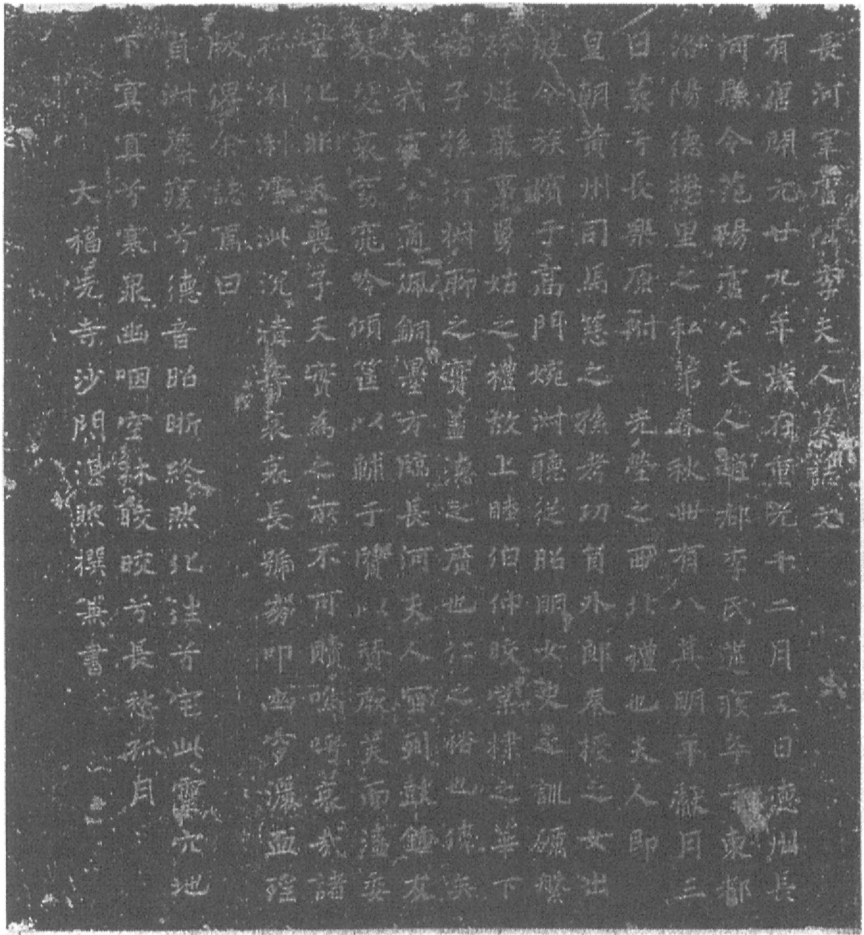 長河宰盧公李夫人墓誌文
有唐開元廿九年歲在重光十二月五日德州長
河縣令范陽盧公夫人趙郡李氏遘疾卒于東都
洛陽德懋里之私第春秋卌有八其明年獻月三
日葬于長樂原附先塋之西北禮也夫人即
皇朝黃州司馬慈之孫考功員外郎秦授之女出
彼令族嬪于高門婉淑聽從昭明女史之訓礪縏
袗筵嚴事舅姑之禮故上睦伯仲皎棠棣之華下
裕子孫衍椒聊之實蓋德之廣也仁之裕也猗歟
夫我盧公適佩銅墨方臨長河夫人密列鼓鍾友
琴瑟哀窈窕吟傾筐以輔于賢以贊厥美而溘委
靈化昭永喪乎天實為之末不可贖嗚呼哀哉諸
孤洌洌漣洏沉積哀哀長號夢叩幽穸濡血瑶
版俾余誌焉曰
貞淑榮疑兮德音昭晰終然化往兮宅此靈穴地
下冥冥兮寒泉幽咽空林皎皎兮長愁孤月
大福先寺沙門湛然撰兼書